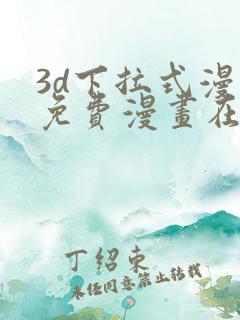 3d下拉式漫
免費漫畫在
丁紹東
未经同意禁止转载